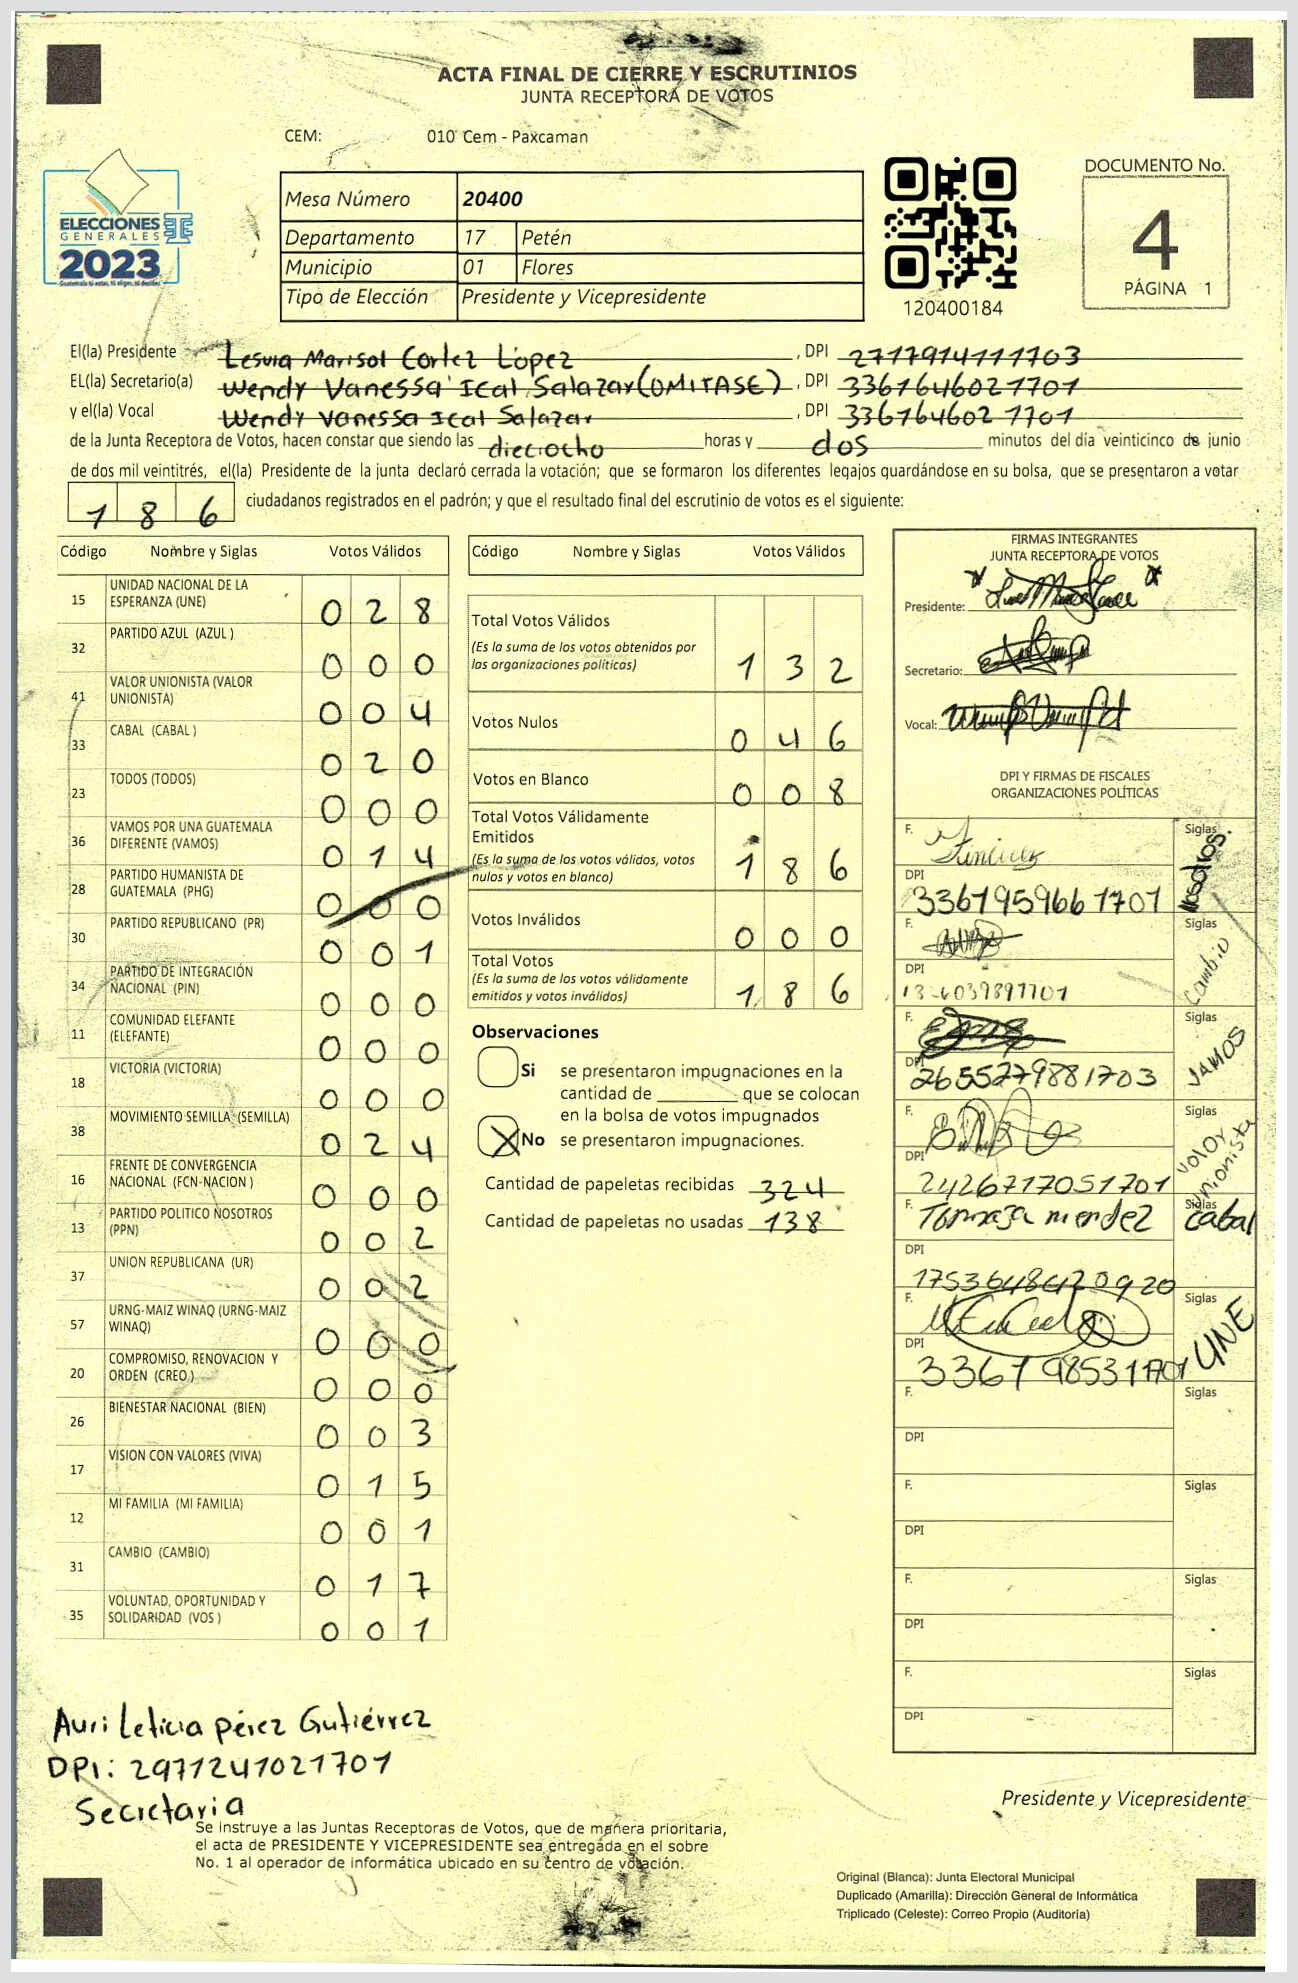 ACTA FINAL DE CIERRE Y ESCRUTINIOS
JUNTA RECEPTORA DE VOTOS
CEM: 010 Cem - Paxcaman
ELECCIONES
GENERALES
2023
Mesa Número 20400
Departamento 17 Petén
Municipio 01 Flores
Tipo de Elección Presidente y Vicepresidente
120400184
DOCUMENTO No.
4
PÁGINA 1
El(la) Presidente Lesvia Marisol Cortez López, DPI 2717914111703
EL(la) Secretario(a) Wendy Vanessa Ical Salazar (OMITASE), DPI 3361646021701
y el(la) Vocal Wendy Vanessa Ical Salazar, DPI 3361646021701
de la Junta Receptora de Votos, hacen constar que siendo las dieciocho horas y dos minutos del día veinticinco de junio
de dos mil veintitrés, el(la) Presidente de la junta declaró cerrada la votación; que se formaron los diferentes legajos guardándose en su bolsa, que se presentaron a votar
186 ciudadanos registrados en el padrón; y que el resultado final del escrutinio de votos es el siguiente:
Código Nombre y Siglas Votos Válidos
15 UNIDAD NACIONAL DE LA ESPERANZA (UNE) 028
32 PARTIDO AZUL (AZUL ) 000
41 VALOR UNIONISTA (VALOR UNIONISTA) 004
33 CABAL (CABAL ) 020
23 TODOS (TODOS) 000
36 VAMOS POR UNA GUATEMALA DIFERENTE (VAMOS) 014
28 PARTIDO HUMANISTA DE GUATEMALA (PHG) 000
30 PARTIDO REPUBLICANO (PR) 001
34 PARTIDO DE INTEGRACIÓN NACIONAL (PIN) 000
11 COMUNIDAD ELEFANTE (ELEFANTE) 000
18 VICTORIA (VICTORIA) 000
38 MOVIMIENTO SEMILLA (SEMILLA) 024
16 FRENTE DE CONVERGENCIA NACIONAL (FCN-NACION ) 000
13 PARTIDO POLITICO NOSOTROS (PPN) 002
37 UNION REPUBLICANA (UR) 002
57 URNG-MAIZ WINAQ (URNG-MAIZ WINAQ) 000
20 COMPROMISO, RENOVACION Y ORDEN (CREO ) 000
26 BIENESTAR NACIONAL (BIEN) 003
17 VISION CON VALORES (VIVA) 015
12 MI FAMILIA (MI FAMILIA) 001
31 CAMBIO (CAMBIO) 017
35 VOLUNTAD, OPORTUNIDAD Y SOLIDARIDAD (VOS ) 001
Código Nombre y Siglas Votos Válidos
Total Votos Válidos 132
(Es la suma de los votos obtenidos por
las organizaciones políticas)
Votos Nulos 046
Votos en Blanco 008
Total Votos Válidamente
Emitidos 186
(Es la suma de los votos válidos, votos
nulos y votos en blanco)
Votos Inválidos 000
Total Votos 186
(Es la suma de los votos válidamente
emitidos y votos inválidos)
Observaciones
Si se presentaron impugnaciones en la
cantidad de ________ que se colocan
en la bolsa de votos impugnados
X No se presentaron impugnaciones.
Cantidad de papeletas recibidas 324
Cantidad de papeletas no usadas 138
FIRMAS INTEGRANTES
JUNTA RECEPTORA DE VOTOS
Presidente:
Secretario:
Vocal:
DPI Y FIRMAS DE FISCALES
ORGANIZACIONES POLÍTICAS
F. Siglas Nosotros.
DPI 3361959661701
F. Siglas Cambio
DPI
F. Siglas VAMOS
DPI 2655279881703
F. Siglas Valor Unionista
DPI 2426717051701
F. Tomasa mendez Siglas Cabal
DPI 1753648420920
F. Siglas UNE
DPI 3367198531701
F. Siglas
DPI
F. Siglas
DPI
F. Siglas
DPI
F. Siglas
DPI
Auri Leticia pérez Gutiérrez
DPI: 2971241021701
Secretaria
Presidente y Vicepresidente
Se instruye a las Juntas Receptoras de Votos, que de manera prioritaria,
el acta de PRESIDENTE Y VICEPRESIDENTE sea entregada en el sobre
No. 1 al operador de informática ubicado en su centro de votación.
Original (Blanca): Junta Electoral Municipal
Duplicado (Amarilla): Dirección General de Informática
Triplicado (Celeste): Correo Propio (Auditoría)